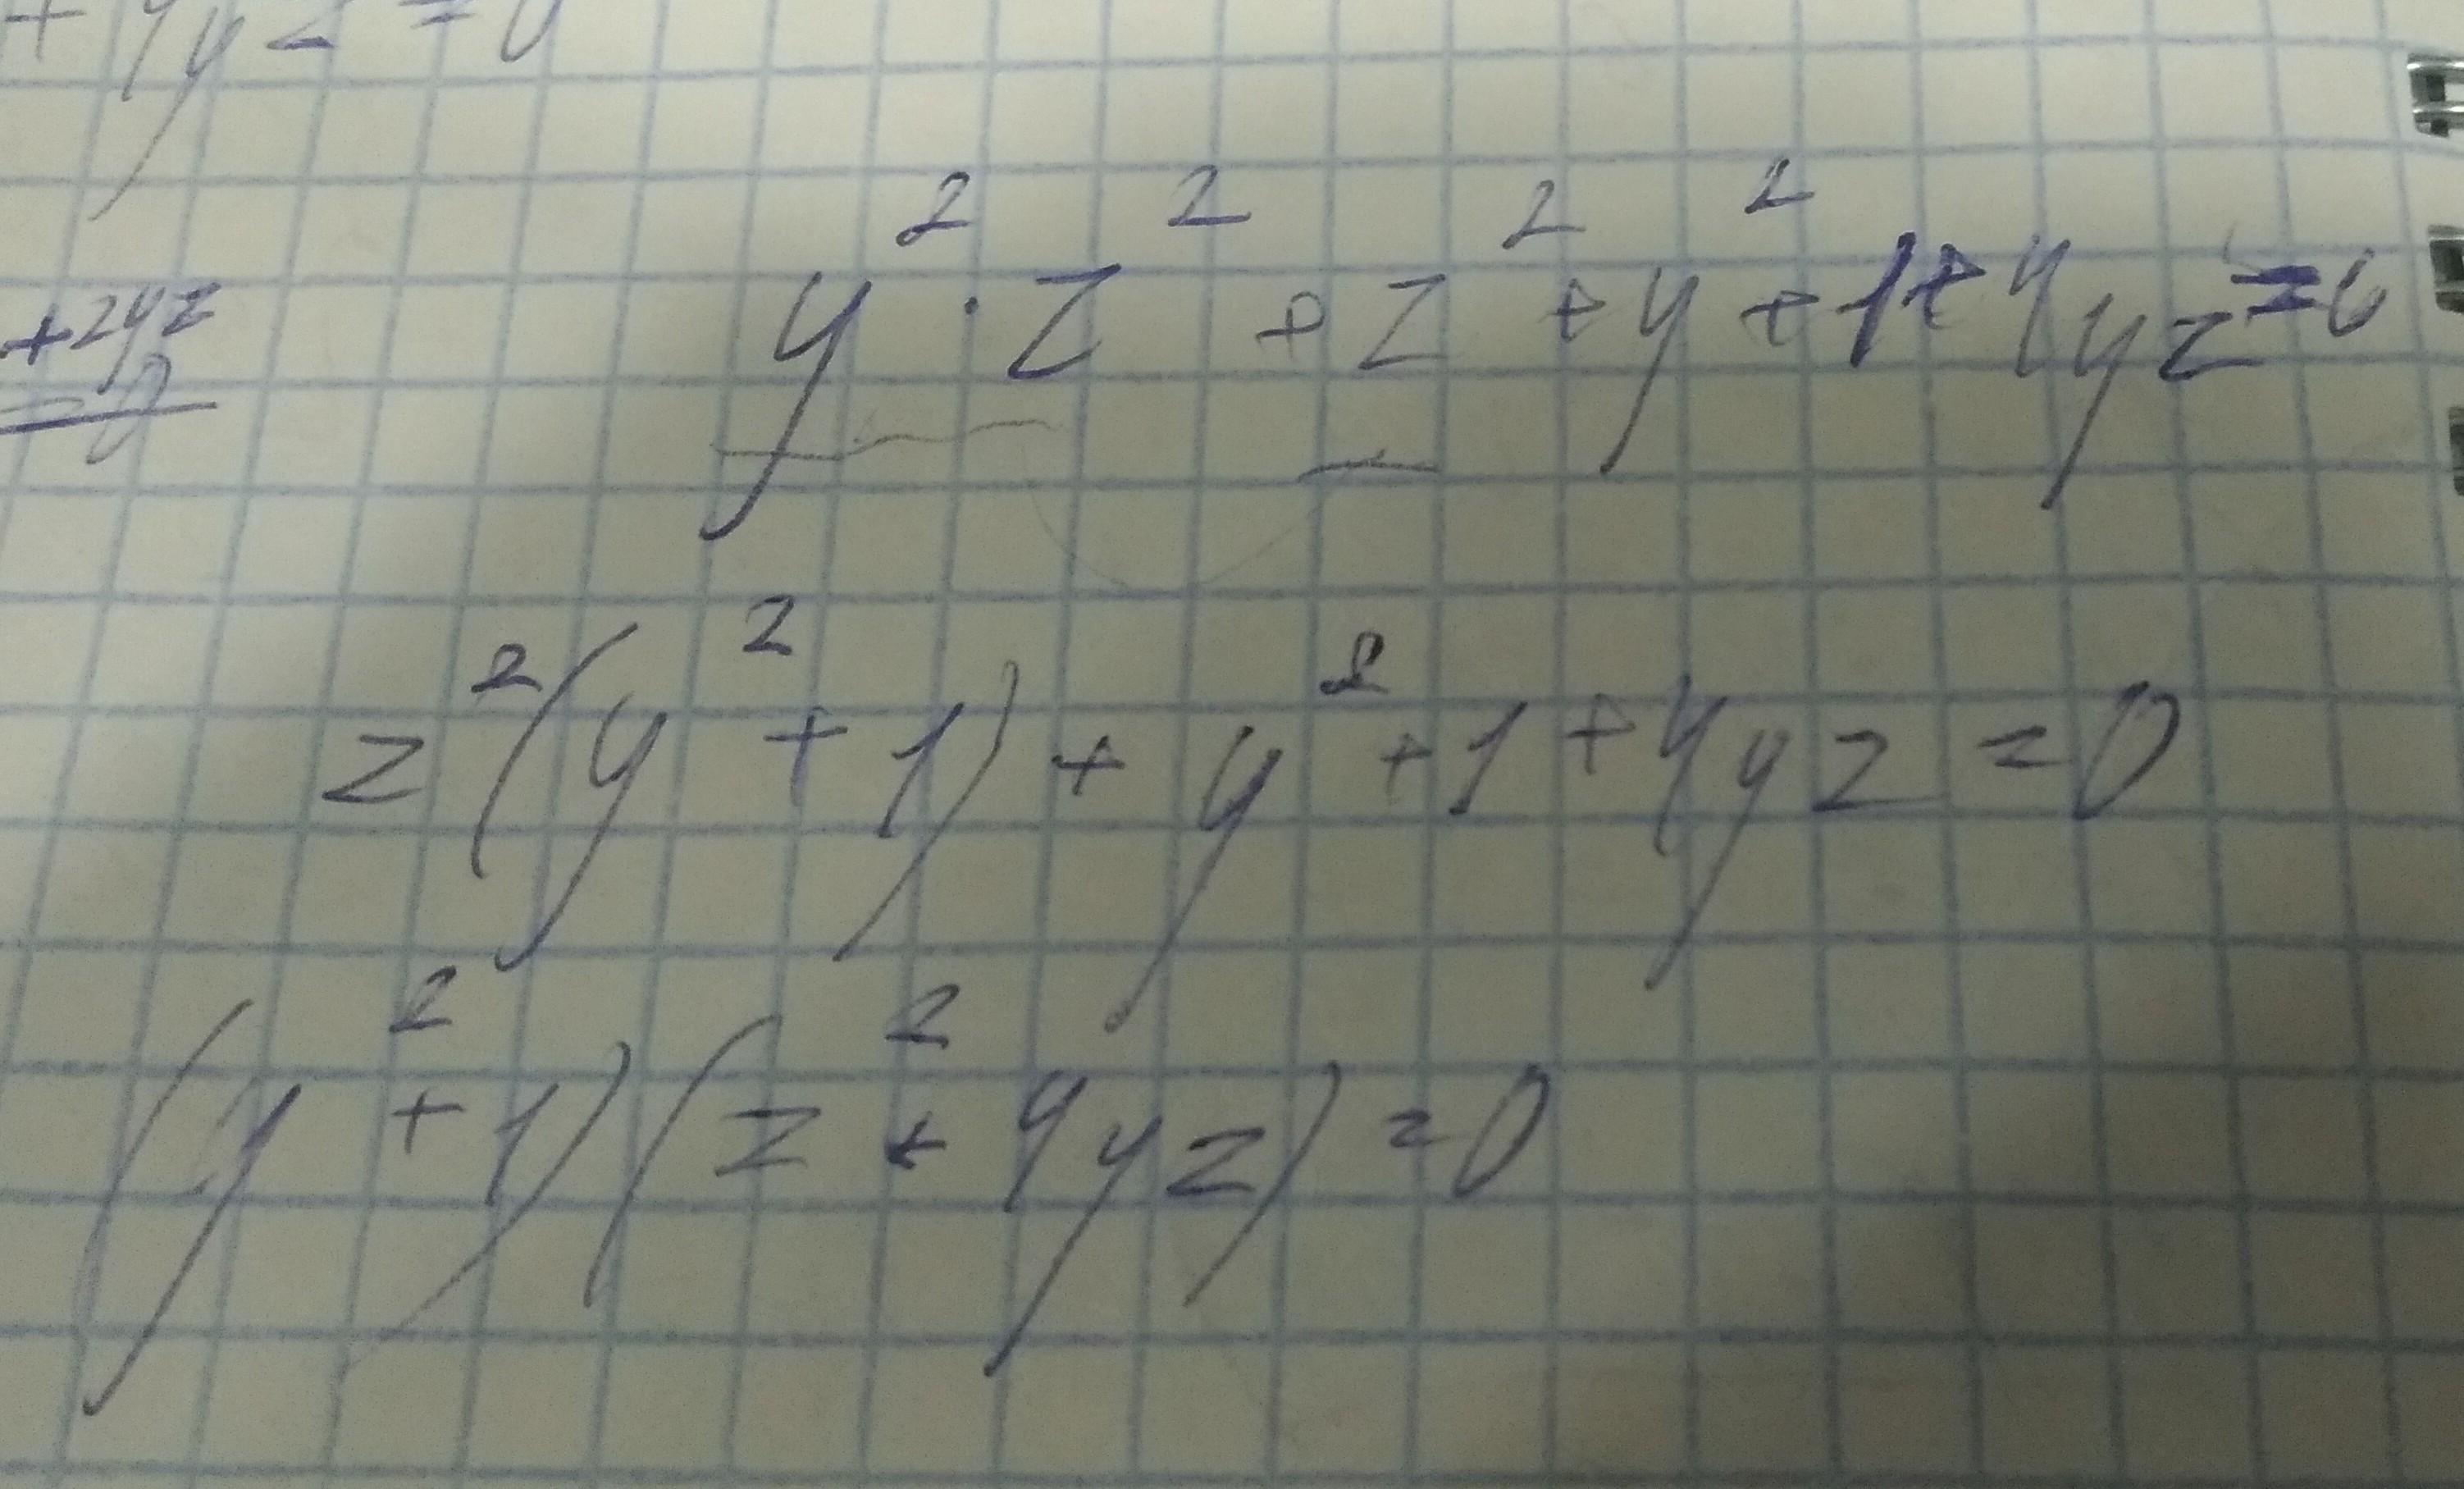 +4yz=0
y²·z²+z²+y²+1+4yz=0
+2yz
=0
z²(y²+1)+y²+1+4yz=0
(y²+1)(z²+4yz)=0